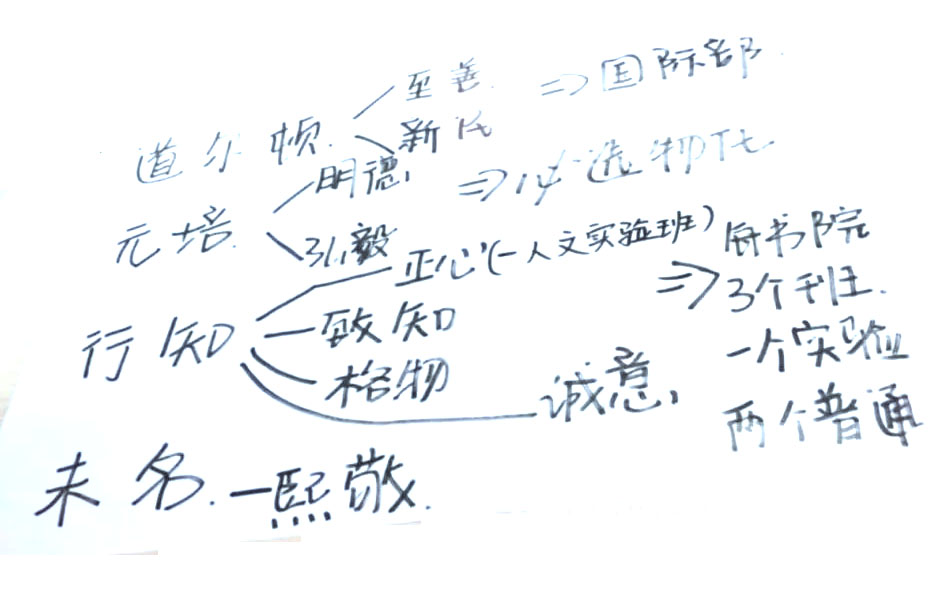 道尔顿 至善 ⇒国际部
新民
元培 明德 ⇒必选物化
弘毅
行知 正心(一人文实验班) ⇒每书院
致知 3个班.
格物 一个实验
诚意 两个普通
未名.一熙敬.